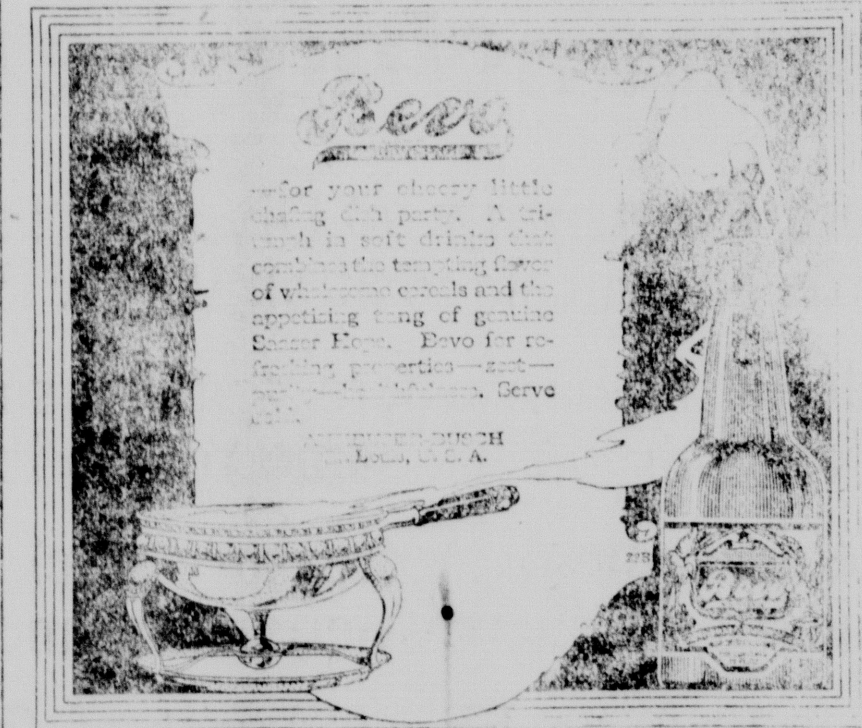 Bevo
—for your cheery little
chafing dish party. A tri-
umph in soft drinks that
combines the tempting flavor
of wholesome cereals and the
appetizing tang of genuine
Saazer Hops. Bevo for re-
freshing properties—zest—
purity—healthfulness. Serve
cold.
ANHEUSER-BUSCH
St. Louis, U. S. A.
22B
Bevo